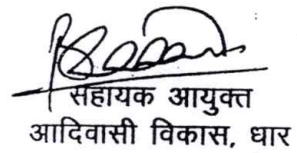 सहायक आयुक्त
आदिवासी विकास, धार